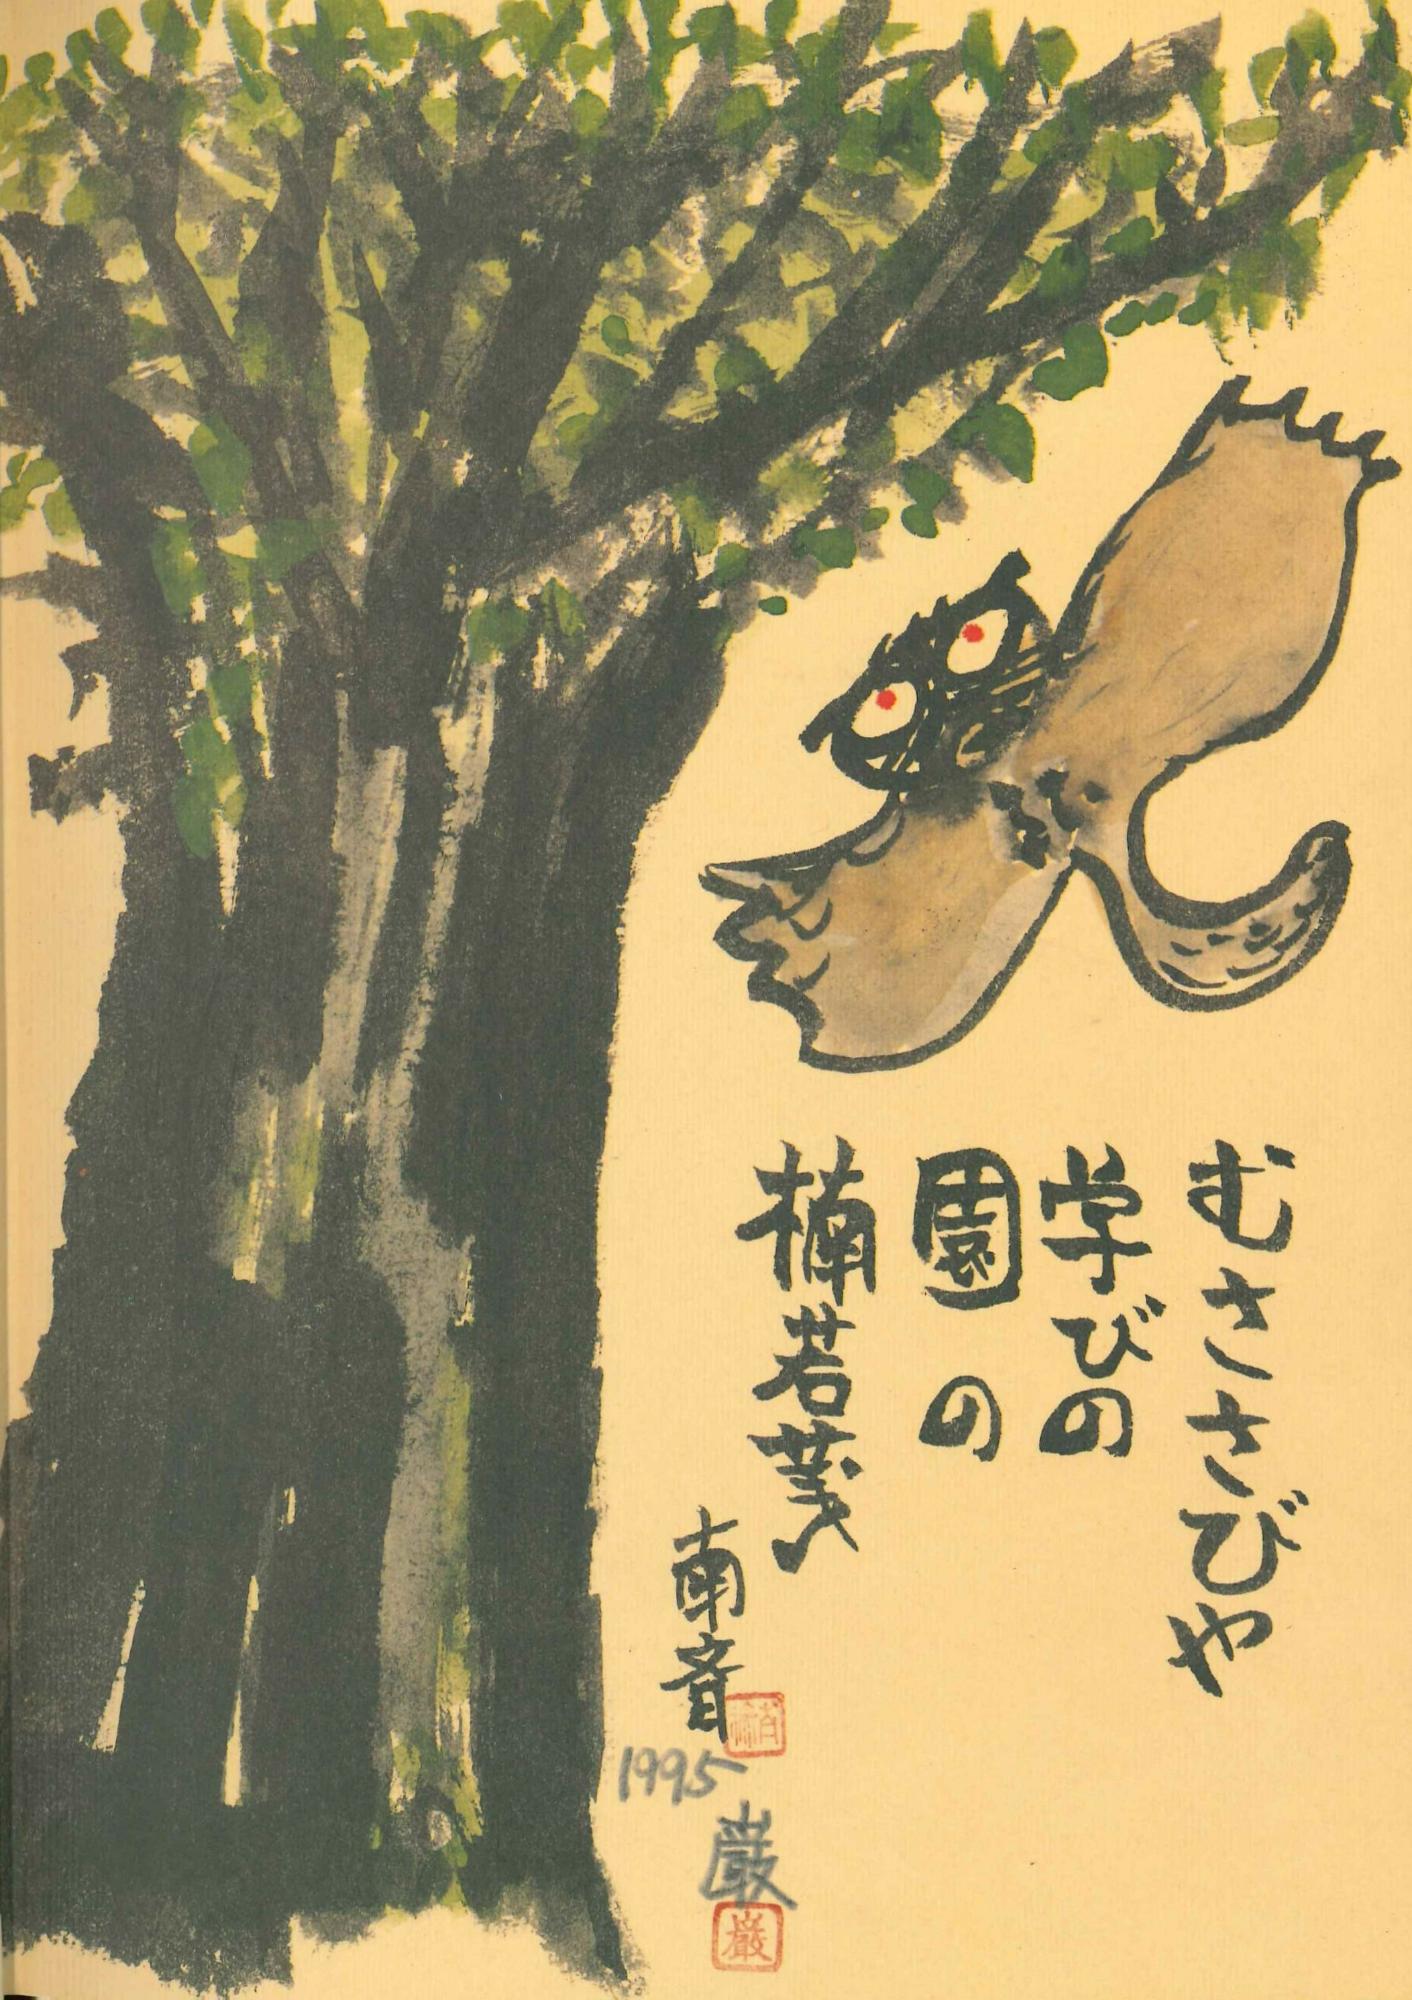 むささびや
学びの
園の
楠若葉
南音
1995
巌
巌